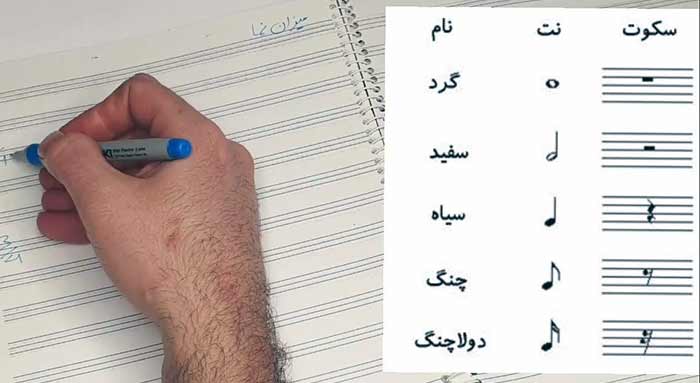 میزان نما
سکوت نت نام
گرد
سفید
سیاه
چنگ
دولاچنگ